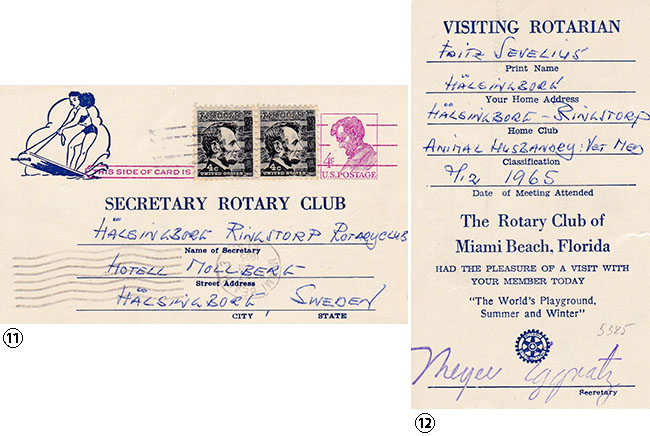 4¢
UNITED STATES
4¢
UNITED STATES
4¢
U.S. POSTAGE
THIS SIDE OF CARD IS
SECRETARY ROTARY CLUB
HÄLSINGBORG RINGSTORP ROTARYCLUB
Name of Secretary
HOTELL MOLLBERG
Street Address
HÄLSINGBORG, SWEDEN
CITY, STATE
11
VISITING ROTARIAN
FRITZ SEVELIUS
Print Name
HÄLSINGBORG
Your Home Address
HÄLSINGBORG - RINGSTORP
Home Club
ANIMAL HUSBANDRY: VET MED
Classification
1965
Date of Meeting Attended
The Rotary Club of
Miami Beach, Florida
HAD THE PLEASURE OF A VISIT WITH
YOUR MEMBER TODAY
"The World's Playground,
Summer and Winter"
5385
Meyer
Secretary
12